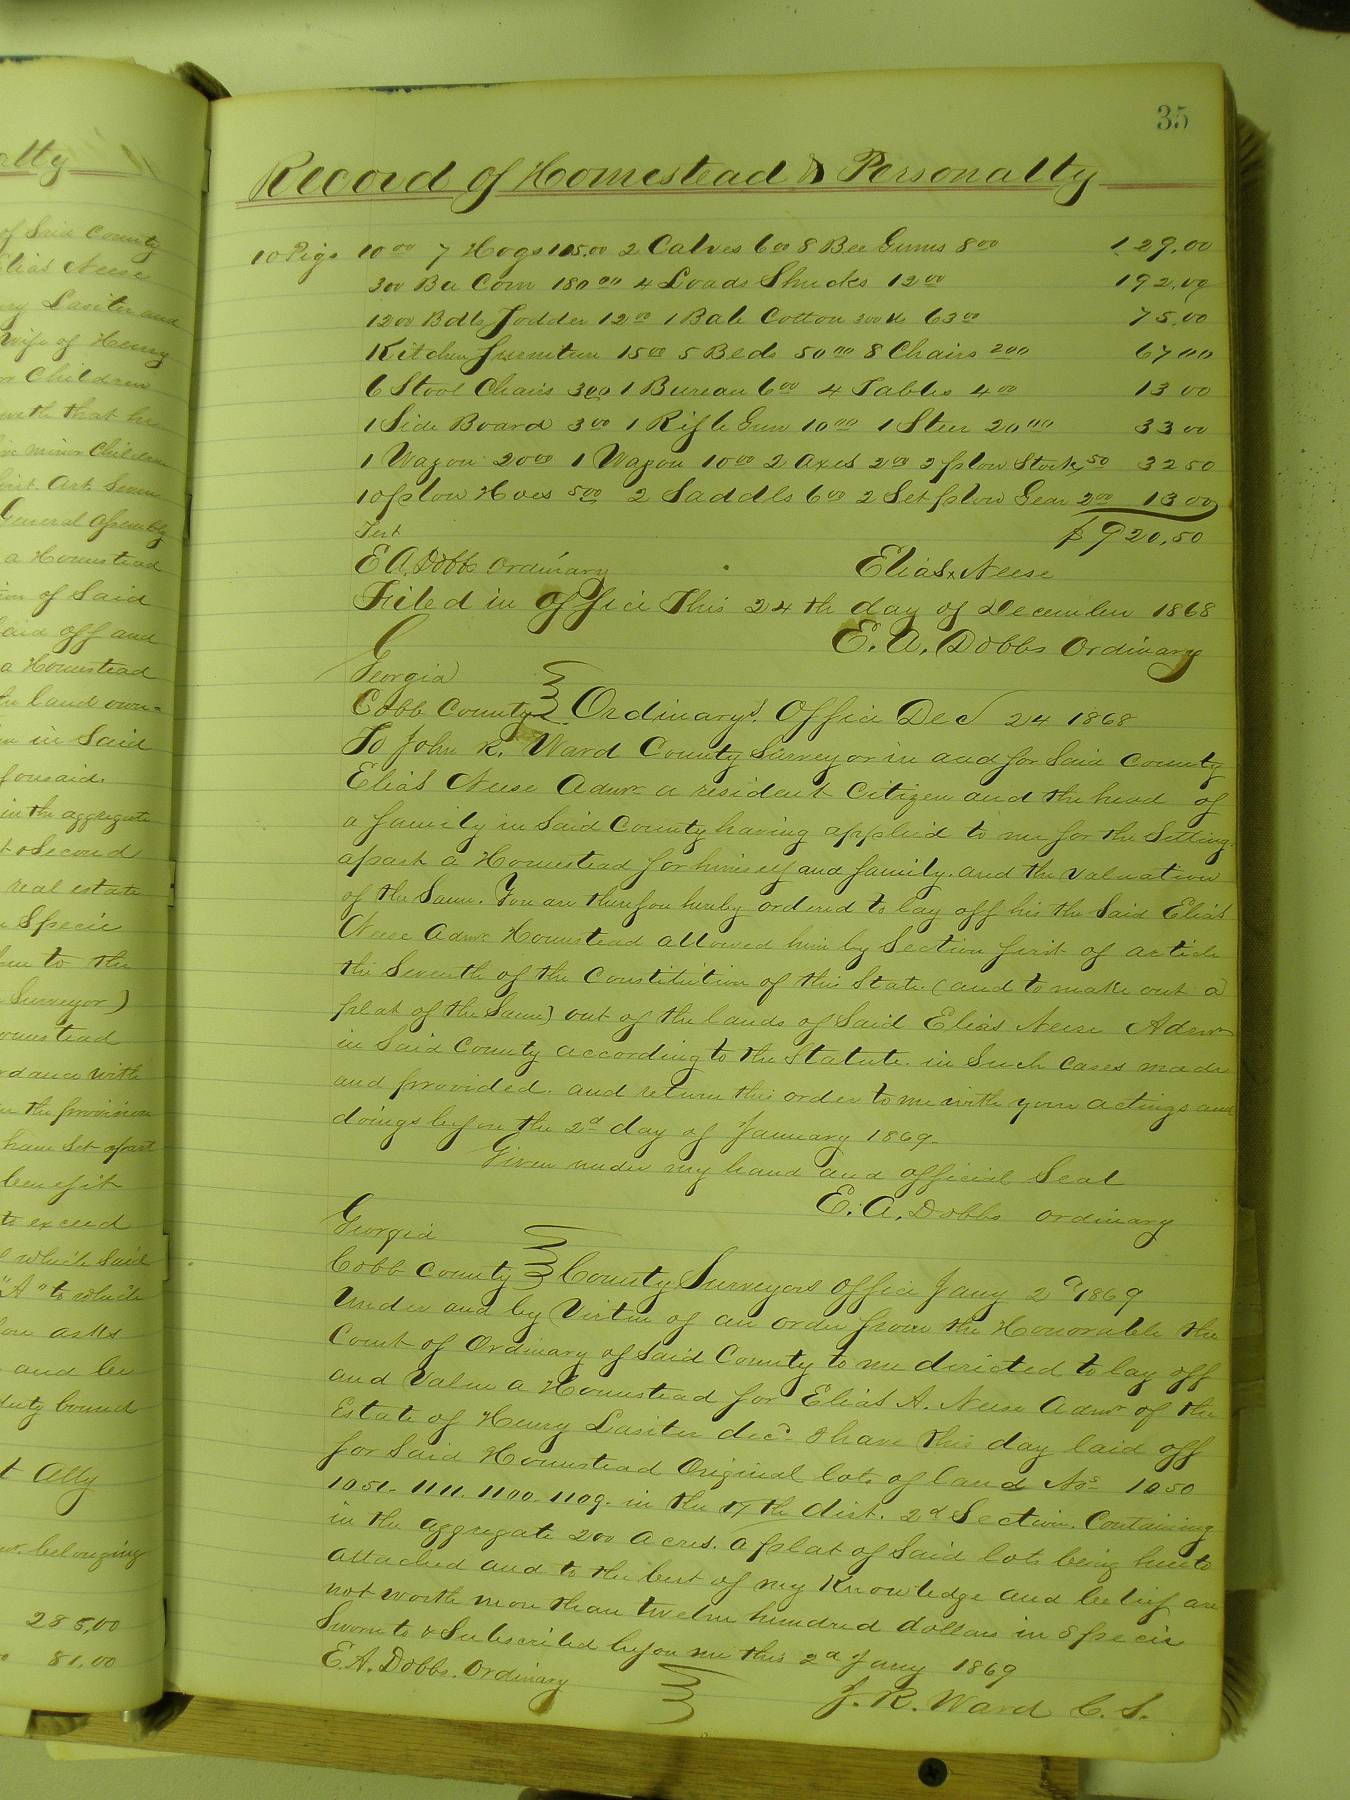 35
Record of Homestead & Personalty
10 Pigs 10 00 7 Hogs 105.00 2 Calves 6 00 8 Bee Gums 8 00 129.00
300 Bu Corn 180 00 4 Loads Shucks 12 00 192.00
1200 Bdls Fodder 12 00 1 Bale Cotton 300 lbs 63 00 75.00
Kitchen furniture 15 00 5 Beds 50 00 8 Chairs 2 00 67 00
6 Stool Chairs 3 00 1 Bureau 6 00 4 Tables 4 00 13 00
1 Side Board 3 00 1 Rifle Gun 10 00 1 Steer 20 00 33 00
1 Wagon 20 00 1 Wagon 10 00 2 Axes 2 00 2 plow Stocks 50 32 50
10 plow Hoes 5 00 2 Saddls 6 00 2 Set plow Gear 2 00 13 00
Test $920.50
E A Dobbs Ordinary Elias x Neese
Filed in Office This 24th day of December 1868
E. A. Dobbs Ordinary
Georgia
Cobb County Ordinary's Office Dec 24 1868
To John R. Ward County Surveyor in and for Said County
Elias Neese Admr a resident Citizen and the head of
a family in Said County having applied to me for the Setting
apart a Homestead for himself and family. and the valuation
of the Same. You are therefore hereby ordered to lay off his the Said Elias
Neese Admr Homestead allowed him by Section first of article
the Seventh of the Constitution of this State (and to make out a
plat of the Same) out of the lands of Said Elias Neese Admr
in Said County according to the Statute in Such cases made
and provided. and return this order to me with your actings and
doings before the 2d day of January 1869.
Given under my hand and official Seal
E. A. Dobbs Ordinary
Georgia
Cobb County County Surveyors Office Jany 2d 1869
Under and by Virtue of an order from the Honorable the
Court of Ordinary of Said County to me directed to lay off
and Value a Homestead for Elias A. Neese Admr of the
Estate of Henry Lasiter decd I have this day laid off
for Said Homestead Original lots of land Nos 1050
1051. 1111. 1100. 1109. in the 17th dist. 2d Section. Containing
in the aggregate 200 Acres. a plat of Said lots being hereto
attached and to the best of my Knowledge and belief are
not worth more than twelve hundred dollars in Specie
Sworn to & Subscribed before me this 2d Jany 1869
E. A. Dobbs. Ordinary J. R. Ward C. S.
of Said County
Elias Neese
Lasiter and
Wife of Henry
Children
that he
minor Children
Art. Seven
General Assembly
a Homestead
of Said
laid off and
a Homestead
the land own-
in Said
in the aggregate
& Second
real estate
Specie
to the
Surveyor)
with
the provision
have Set apart
benefit
to exceed
which Said
"A" to which
asks
and be
duty bound
Atty
belonging
285.00
81.00